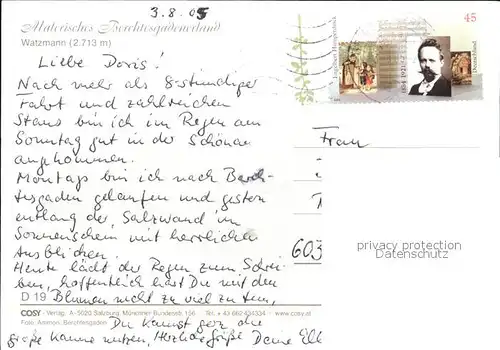 3.8.05
Malerisches Berchtesgadenerland
Watzmann (2.713 m)
Liebe Doris!
Nach mehr als 8-stündiger
Fahrt und zahlreichen
Staus bin ich im Regen am
Sonntag gut in der Schönau
angekommen.
Montags bin ich nach Berch-
tesgaden gelaufen und gestern
entlang der Salzwand im
Sonnenschein mit herrlichen
Ausblicken.
Heute lädt der Regen zum Schrei-
ben, hoffentlich hast Du mit den
Blumen nicht zu viel zu tun,
D 19
COSY · Verlag, A-5020 Salzburg, Münchner Bundesstr. 156 Tel. + 43 662 434334 · www.cosy.at
Foto: Ammon, Berchtesgaden
Du kannst gerne die
große Kanne nutzen, Herzliche Grüße Deine Elli
45
Engelbert Humperdinck
1854-1921
Deutschland
Frau
603
privacy protection
Datenschutz